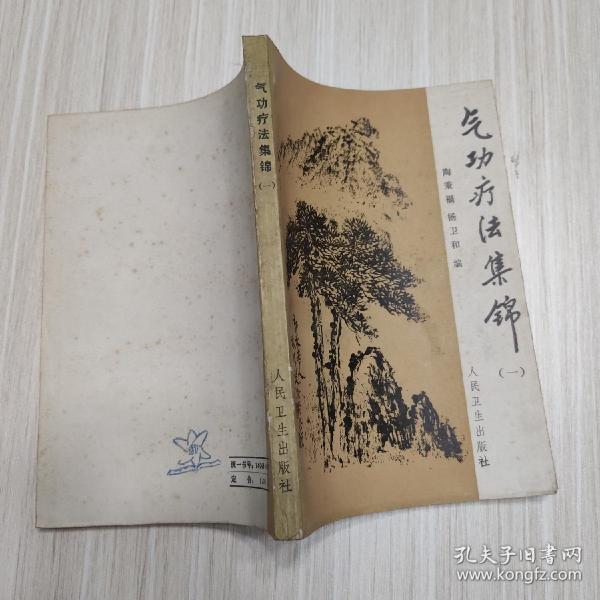 气功疗法集锦
（一）
陶秉福 杨卫和 编
人民卫生出版社
气功疗法集锦
（一）
人民卫生出版社
统一书号：
定价：
孔夫子旧书网
www.kongfz.com